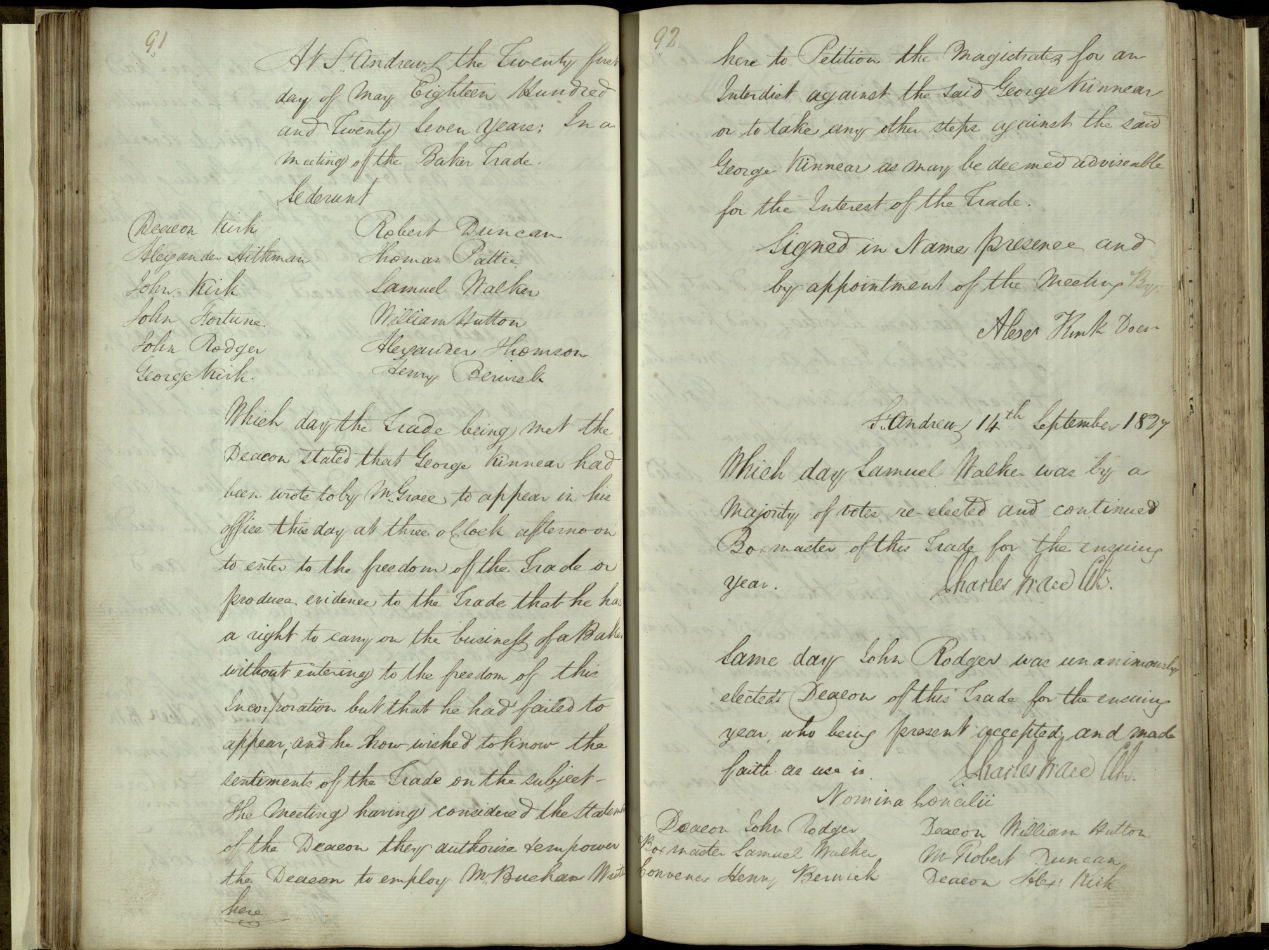 91
At St Andrews the Twenty first
day of May Eighteen Hundred
and Twenty Seven Years: In a
meeting of the Baker Trade.
Sederunt
Deacon Kirk Robert Duncan
Alexander Aithman Thomas Pattie
John Kirk Samuel Walker
John Fortune William Hutton
John Rodger Alexander Thomson
George Kirk. Henry Berwick
Which day the Trade being met the
Deacon stated that George Kinnear had
been wrote to by Mr Grace to appear in his
office this day at three o'Clock afternoon
to enter to the freedom of the Trade or
produce evidence to the Trade that he has
a right to carry on the business of a Baker
without entering to the freedom of this
Incorporation but that he had failed to
appear, and he now wished to know the
sentiments of the Trade on the subject –
The Meeting having considered the Statement
of the Deacon they authorise & empower
the Deacon to employ Mr Buchan Writer
here
92
here to Petition the Magistrates for an
Interdict against the said George Kinnear
or to take any other steps against the said
George Kinnear as may be deemed adviseable
for the Interest of the Trade.
Signed in Name presence and
by appointment of the Meeting By.
Alexr Kirk Deen
St Andrews 14th September 1827
Which day Samuel Walker was by a
Majority of votes re-elected and continued
Boxmaster of this Trade for the ensuing
year. Charles Grace Clk.
Same day John Rodger was unanimously
elected Deacon of this Trade for the ensuing
year, who being present accepted and made
faith as use is. Charles Grace Clk.
Nomina Concilii
Deacon John Rodger Deacon William Hutton
Boxmaster Samuel Walker Mr Robert Duncan
Convener Henry Berwick Deacon Alexr Kirk